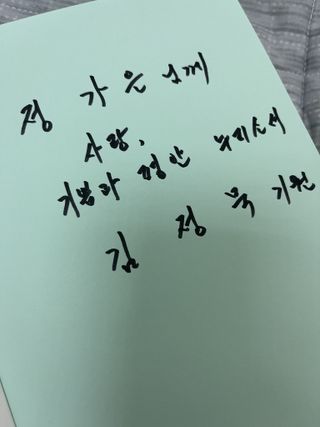 정 가은 님께
사랑,
기쁨과 평안 누리소서
김 정 욱 기원